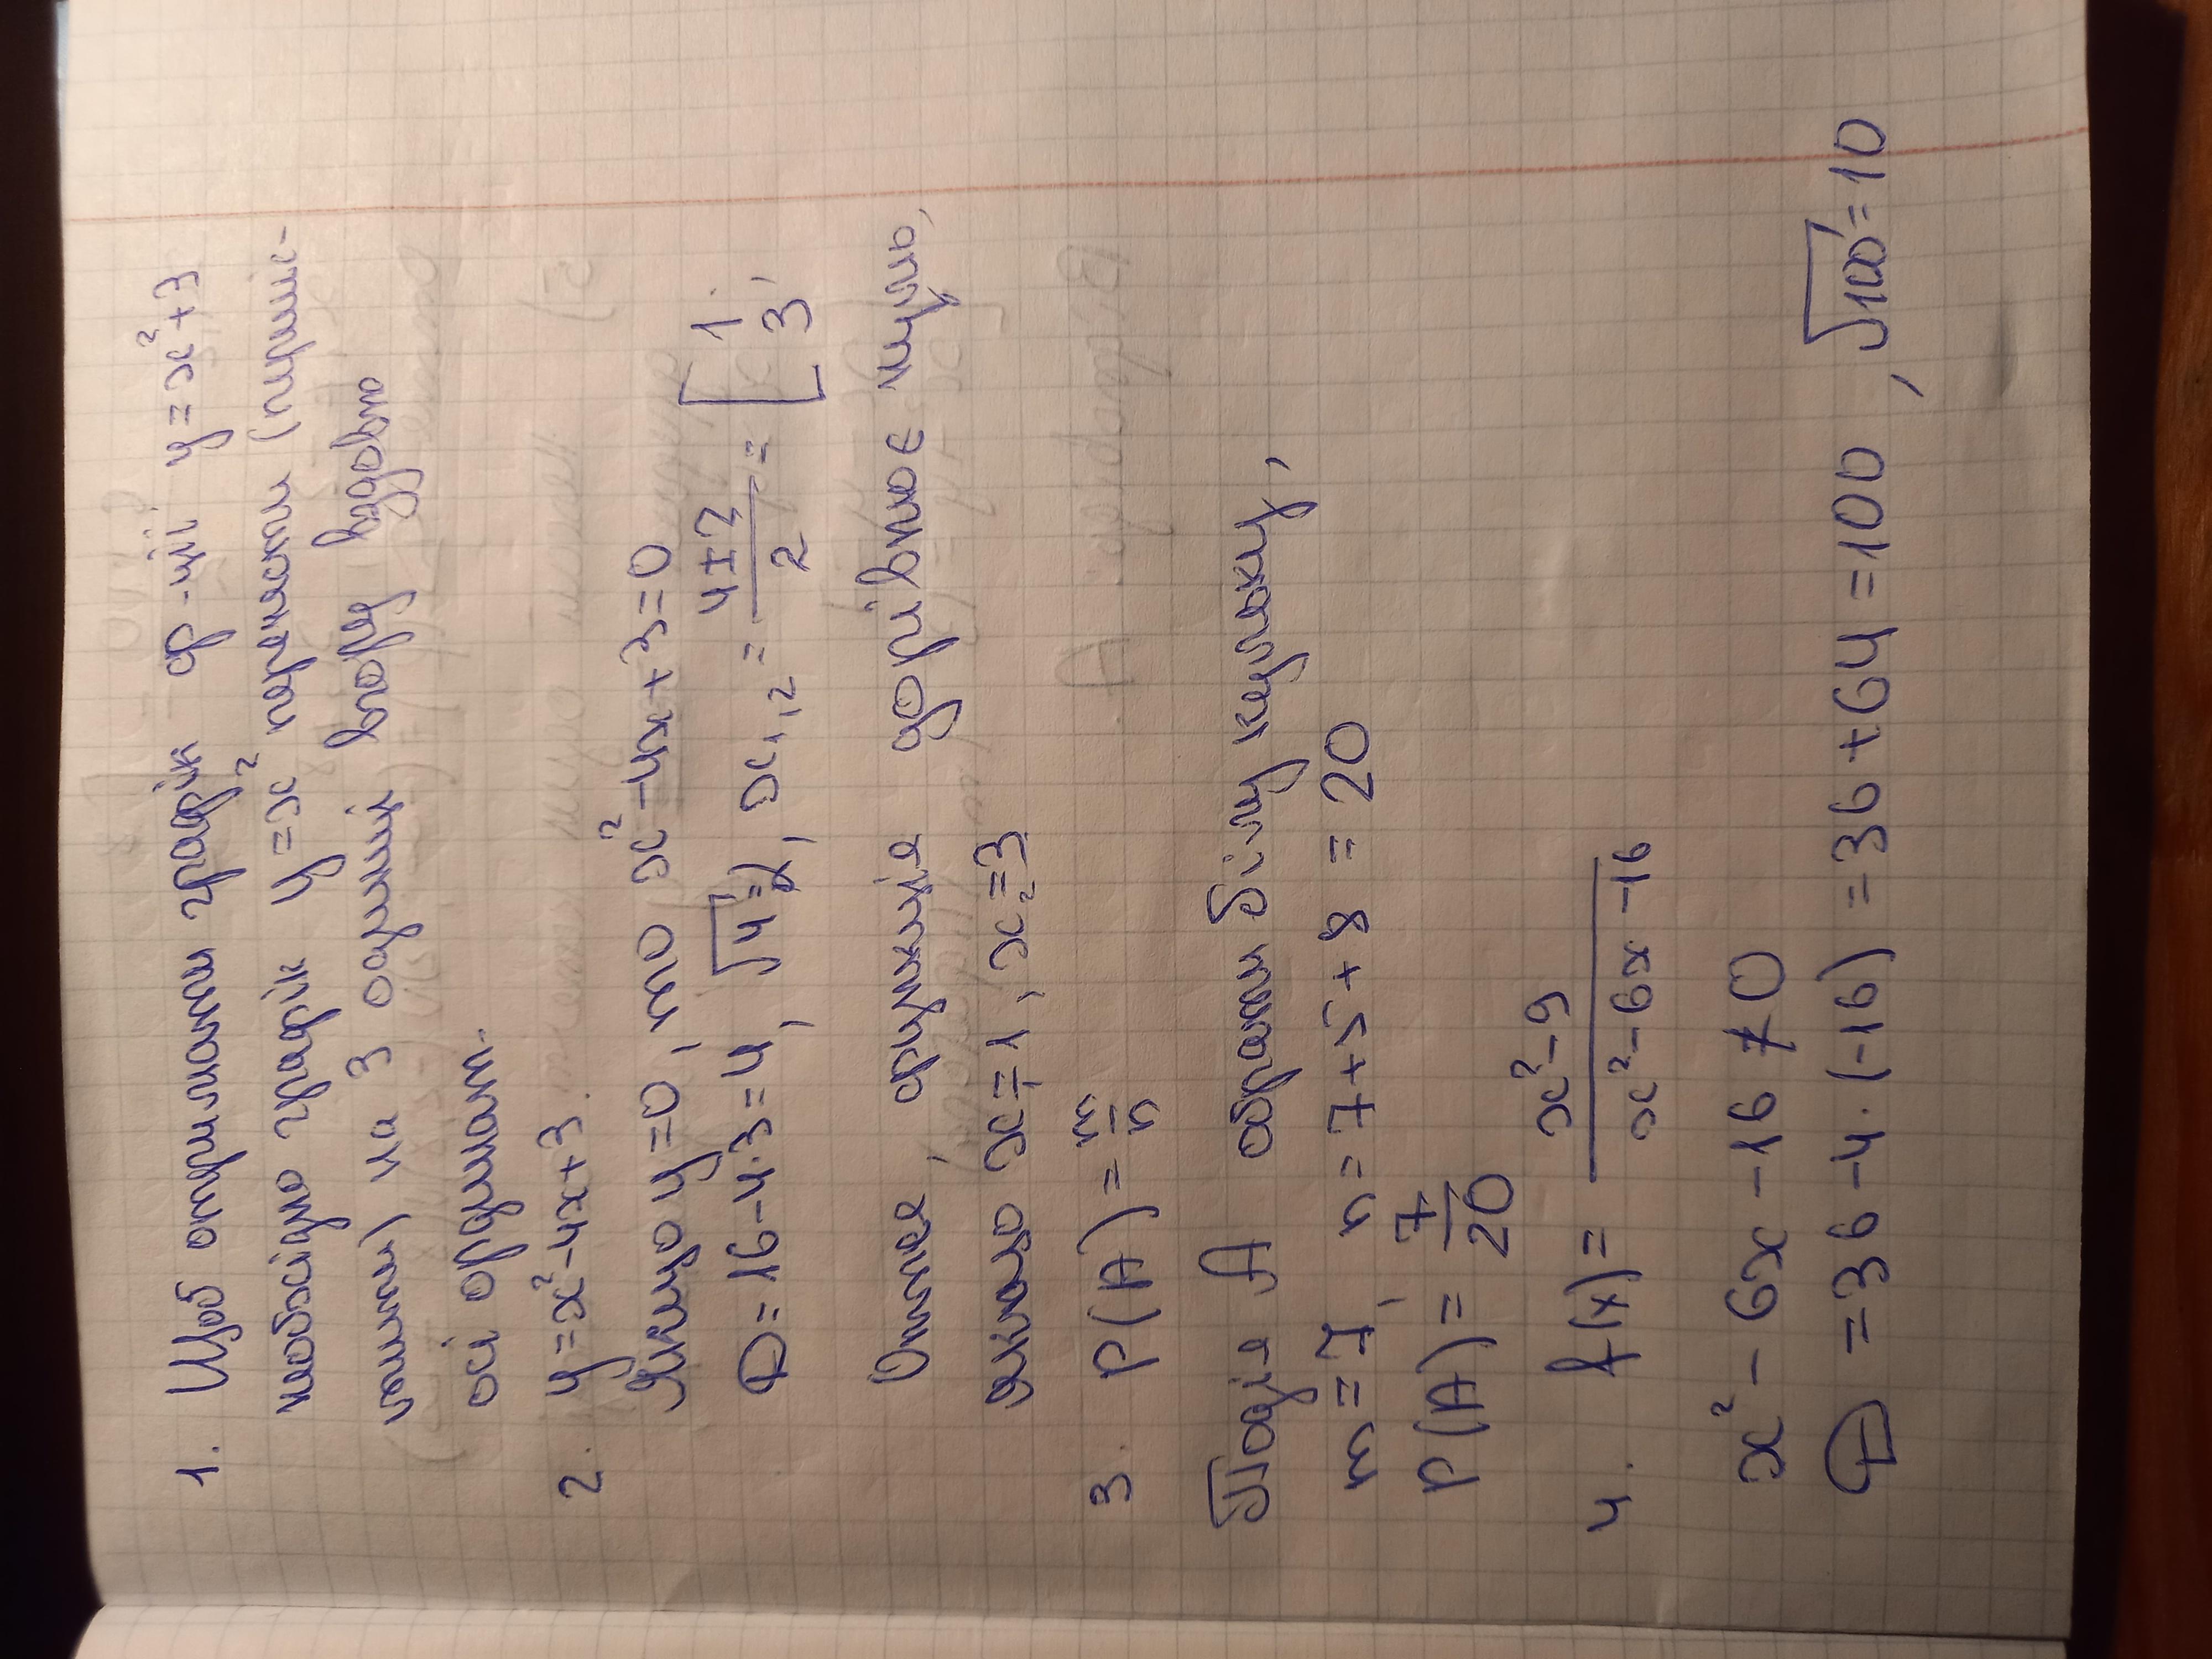 1. Щоб отримати графік ф-ції y = x² + 3
необхідно графік y = x² перенести (підніс-
ти) на 3 одиниці вгору вздовж
осі ординат.
2. y = x² - 4x + 3.
Якщо y = 0, то x² - 4x + 3 = 0
D = 16 - 4·3 = 4, √4 = 2, x₁,₂ = (4 ± 2)/2 = [ 1; 3,
Отже, функція дорівнює нулю,
якщо x₁ = 1, x₂ = 3
3. P(A) = m/n
Подія A обрати білу кульку,
m = 7, n = 7 + 5 + 8 = 20
P(A) = 7/20
4. f(x) = (x² - 9)/(x² - 6x - 16)
x² - 6x - 16 ≠ 0
D = 36 - 4·(-16) = 36 + 64 = 100, √100 = 10